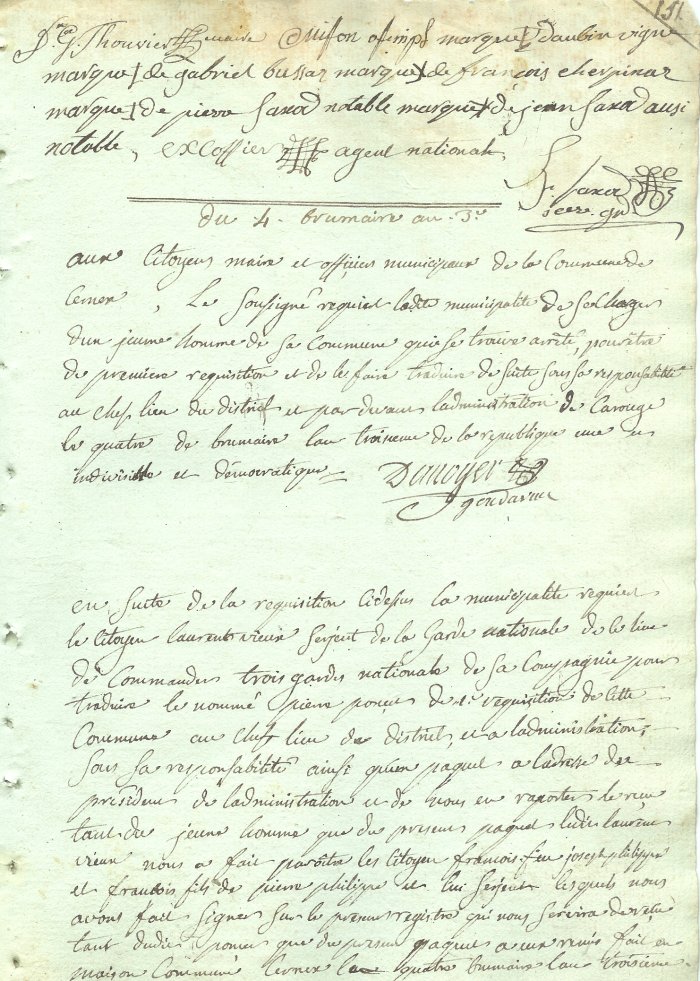 151
G. Thouvier maire marque d'aubin vigne
marque de gabriel bussaz marque de francois cherpinaz
marque de pierre Saxod notable marque de jean Saxod aussi
notable, excoffier agent national
Saxod
secre. gr.
du 4 brumaire an 3e
aux Citoyens maire et officiers municipaux de la Commune de
Cernex, Le Soussigné requiert ladite municipalité de se charger
dun jeune homme de Sa Commune qui se trouve arrêté pour être
de premiere requisition et de les faire traduire de suite sous sa responsabilité
au chef lieu du district et par devant ladministration de Carouge
le quatre de brumaire lan troisieme de la republique une et
indivisible et démocratique
Danoyer
gendarme
en suite de la requisition cidessus la municipalité requiert
le Citoyen laurent vieux Serjent de la Garde nationale de ce lieu
de Commander trois gardes nationale de Sa Compagnie pour
traduire le nommé pierre poncet de 1e requisition de cette
Commune au Cheft lieu de district, et a ladministration,
Sous Sa responsabilité ainsi quun paquet a ladresse des
présidens de ladministration et de nous en raporter le recu
tant du jeune homme que du present paquet ledit laurent
vieux nous a fait paroître les Citoyen francois feu joseph philippe
et francois fils de pierre philippe et lui Serjent lesquels nous
avons fait Signer Sur le present registre qui nous Servira de recu
tant dudit poncet que du present paquet a eux remis fait en
maison Commune Cernex le quatre brumaire lan troisieme